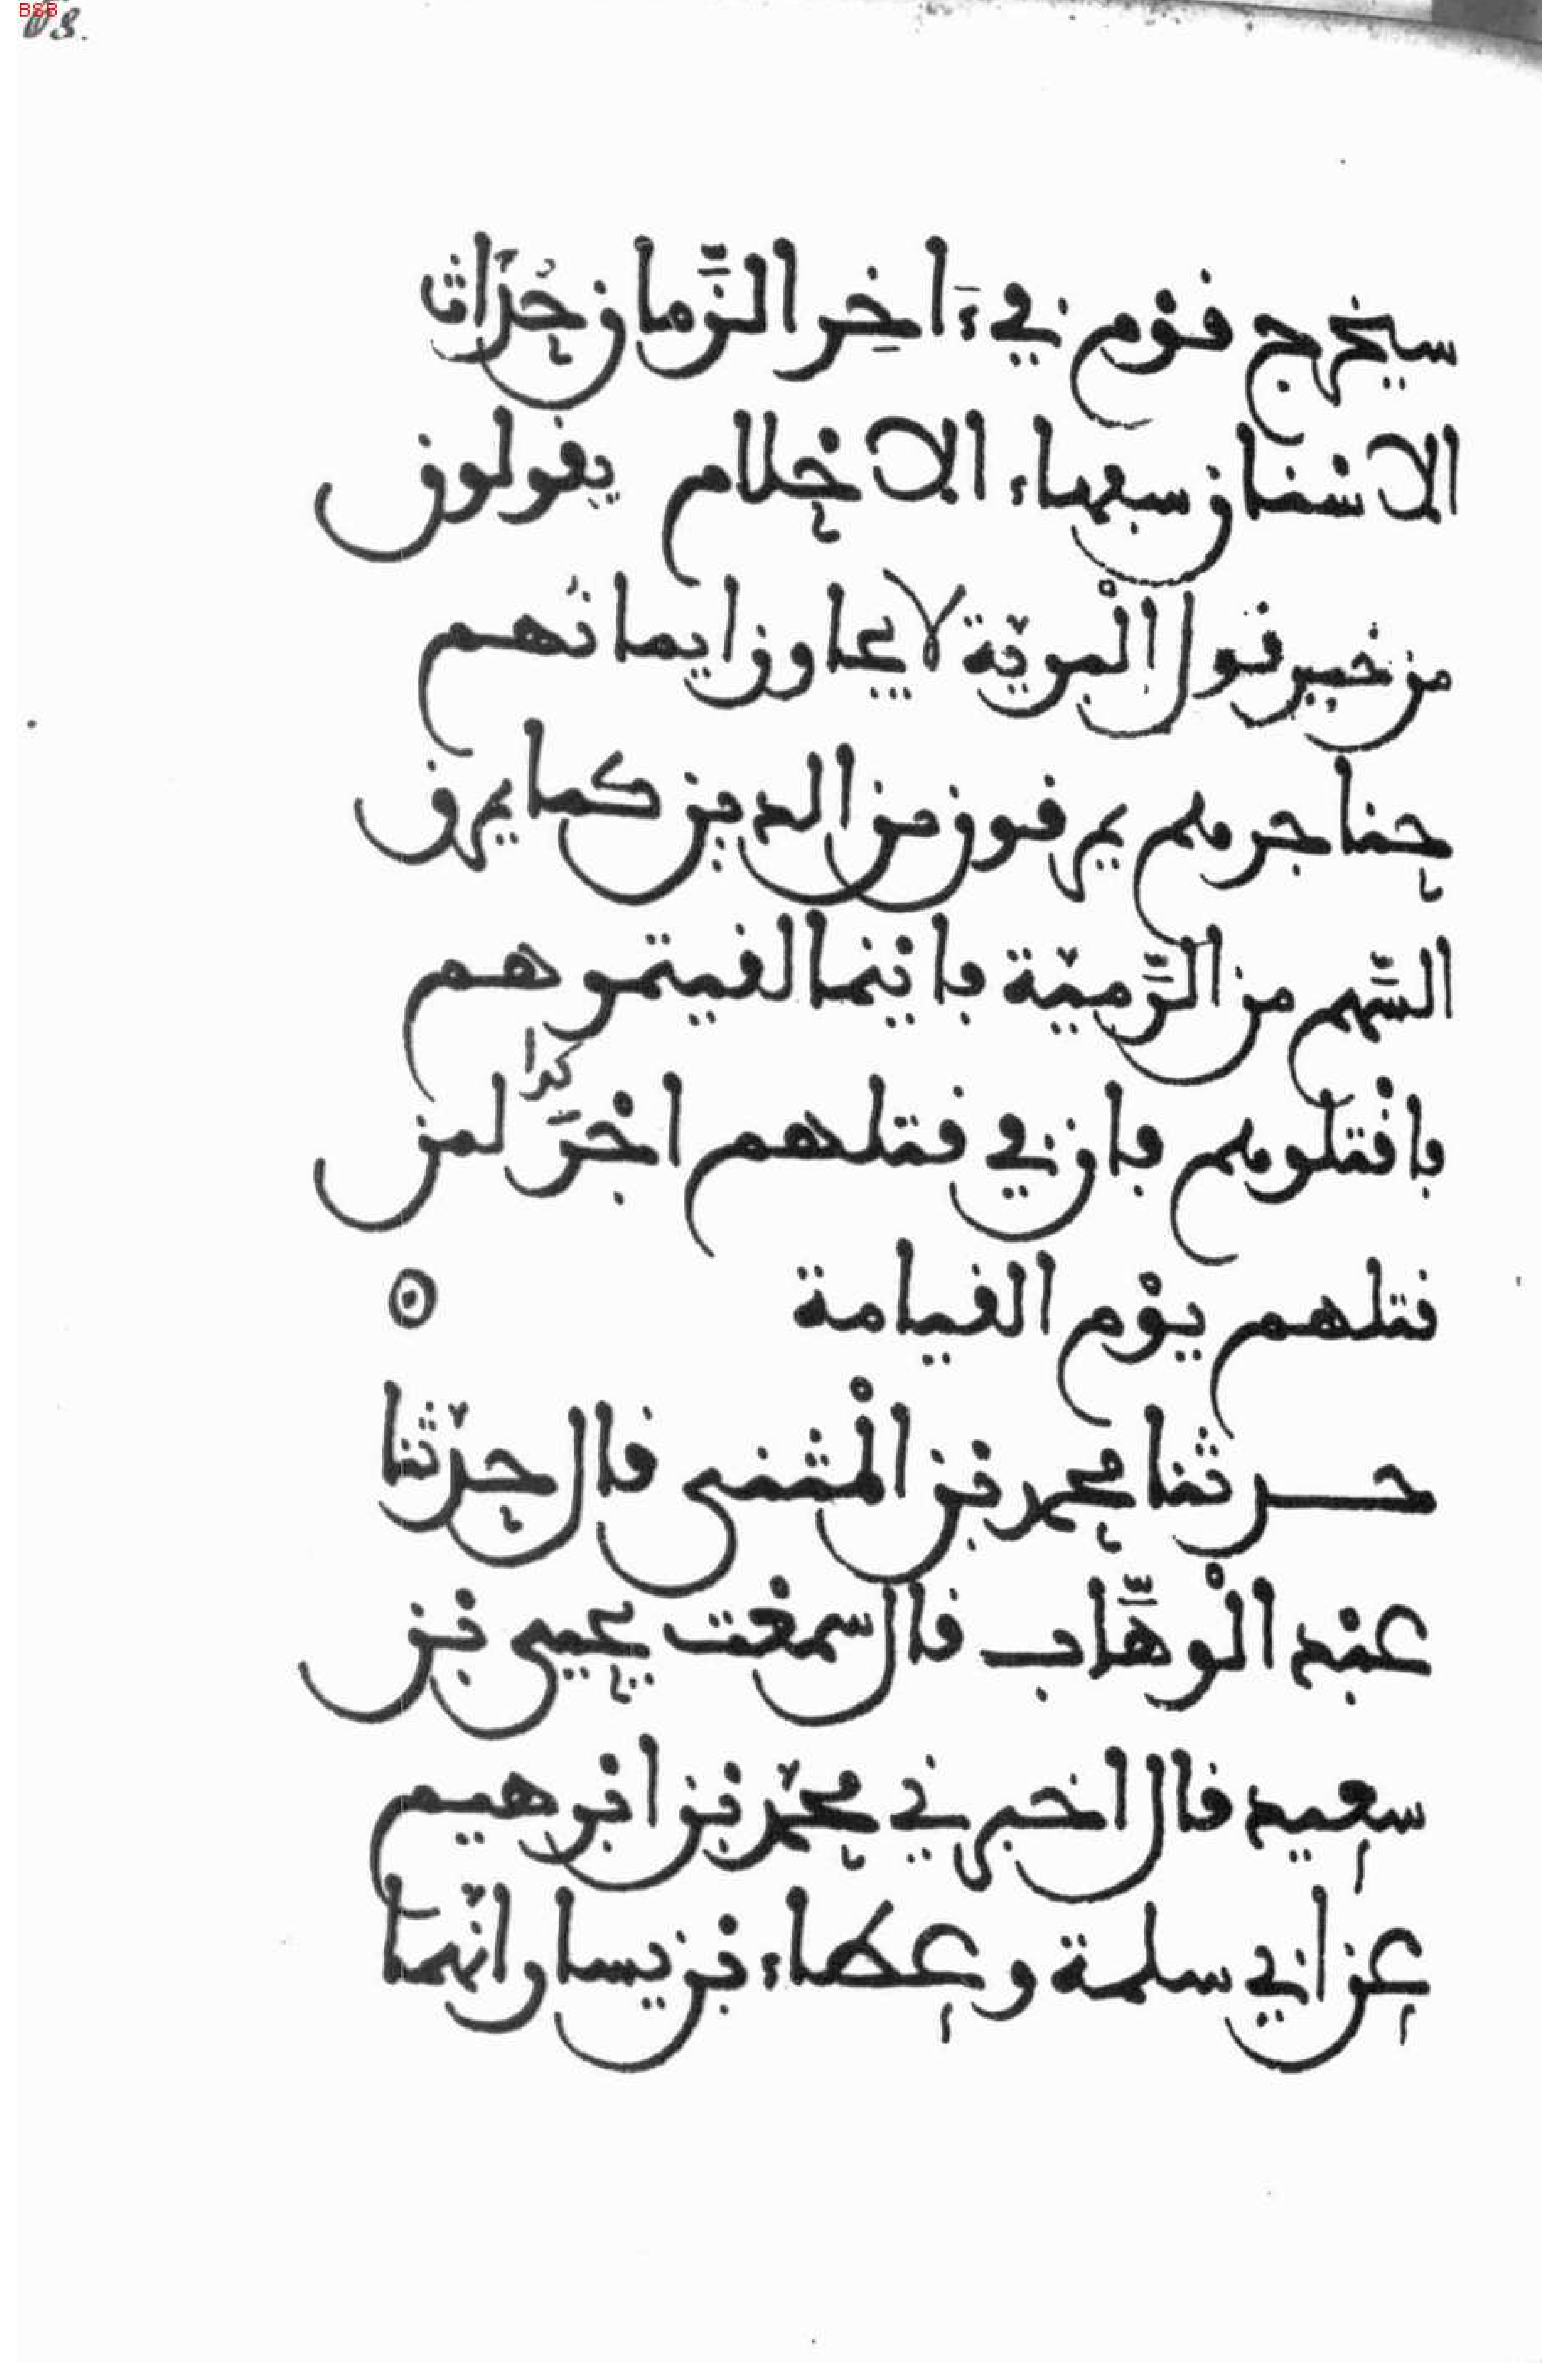 سيخرج قوم في ءاخِر الزَّمان حُدَّاث
الاسنان سفهاء الاحلام يقولون
من خير قول الْبريّة لا يجاوز ايمانُهم
حناجرهم يمرقون من الدين كما يمرق
السَّهم من الرَّميّة فاينما لقيتموهم
فاقتلوهم فان في قتلهم اجْرًا لمن
كذا
قتلهم يوْم القيامة
حدثنا محمد بن الْمثنى قال حدّثنا
عبْد الْوهَّاب قال سمعْت يحيى بن
سعيد قال اخبرني محمّد بن ابْرهيم
عن ابي سلمة وعطاء بن يسار انّهمَا